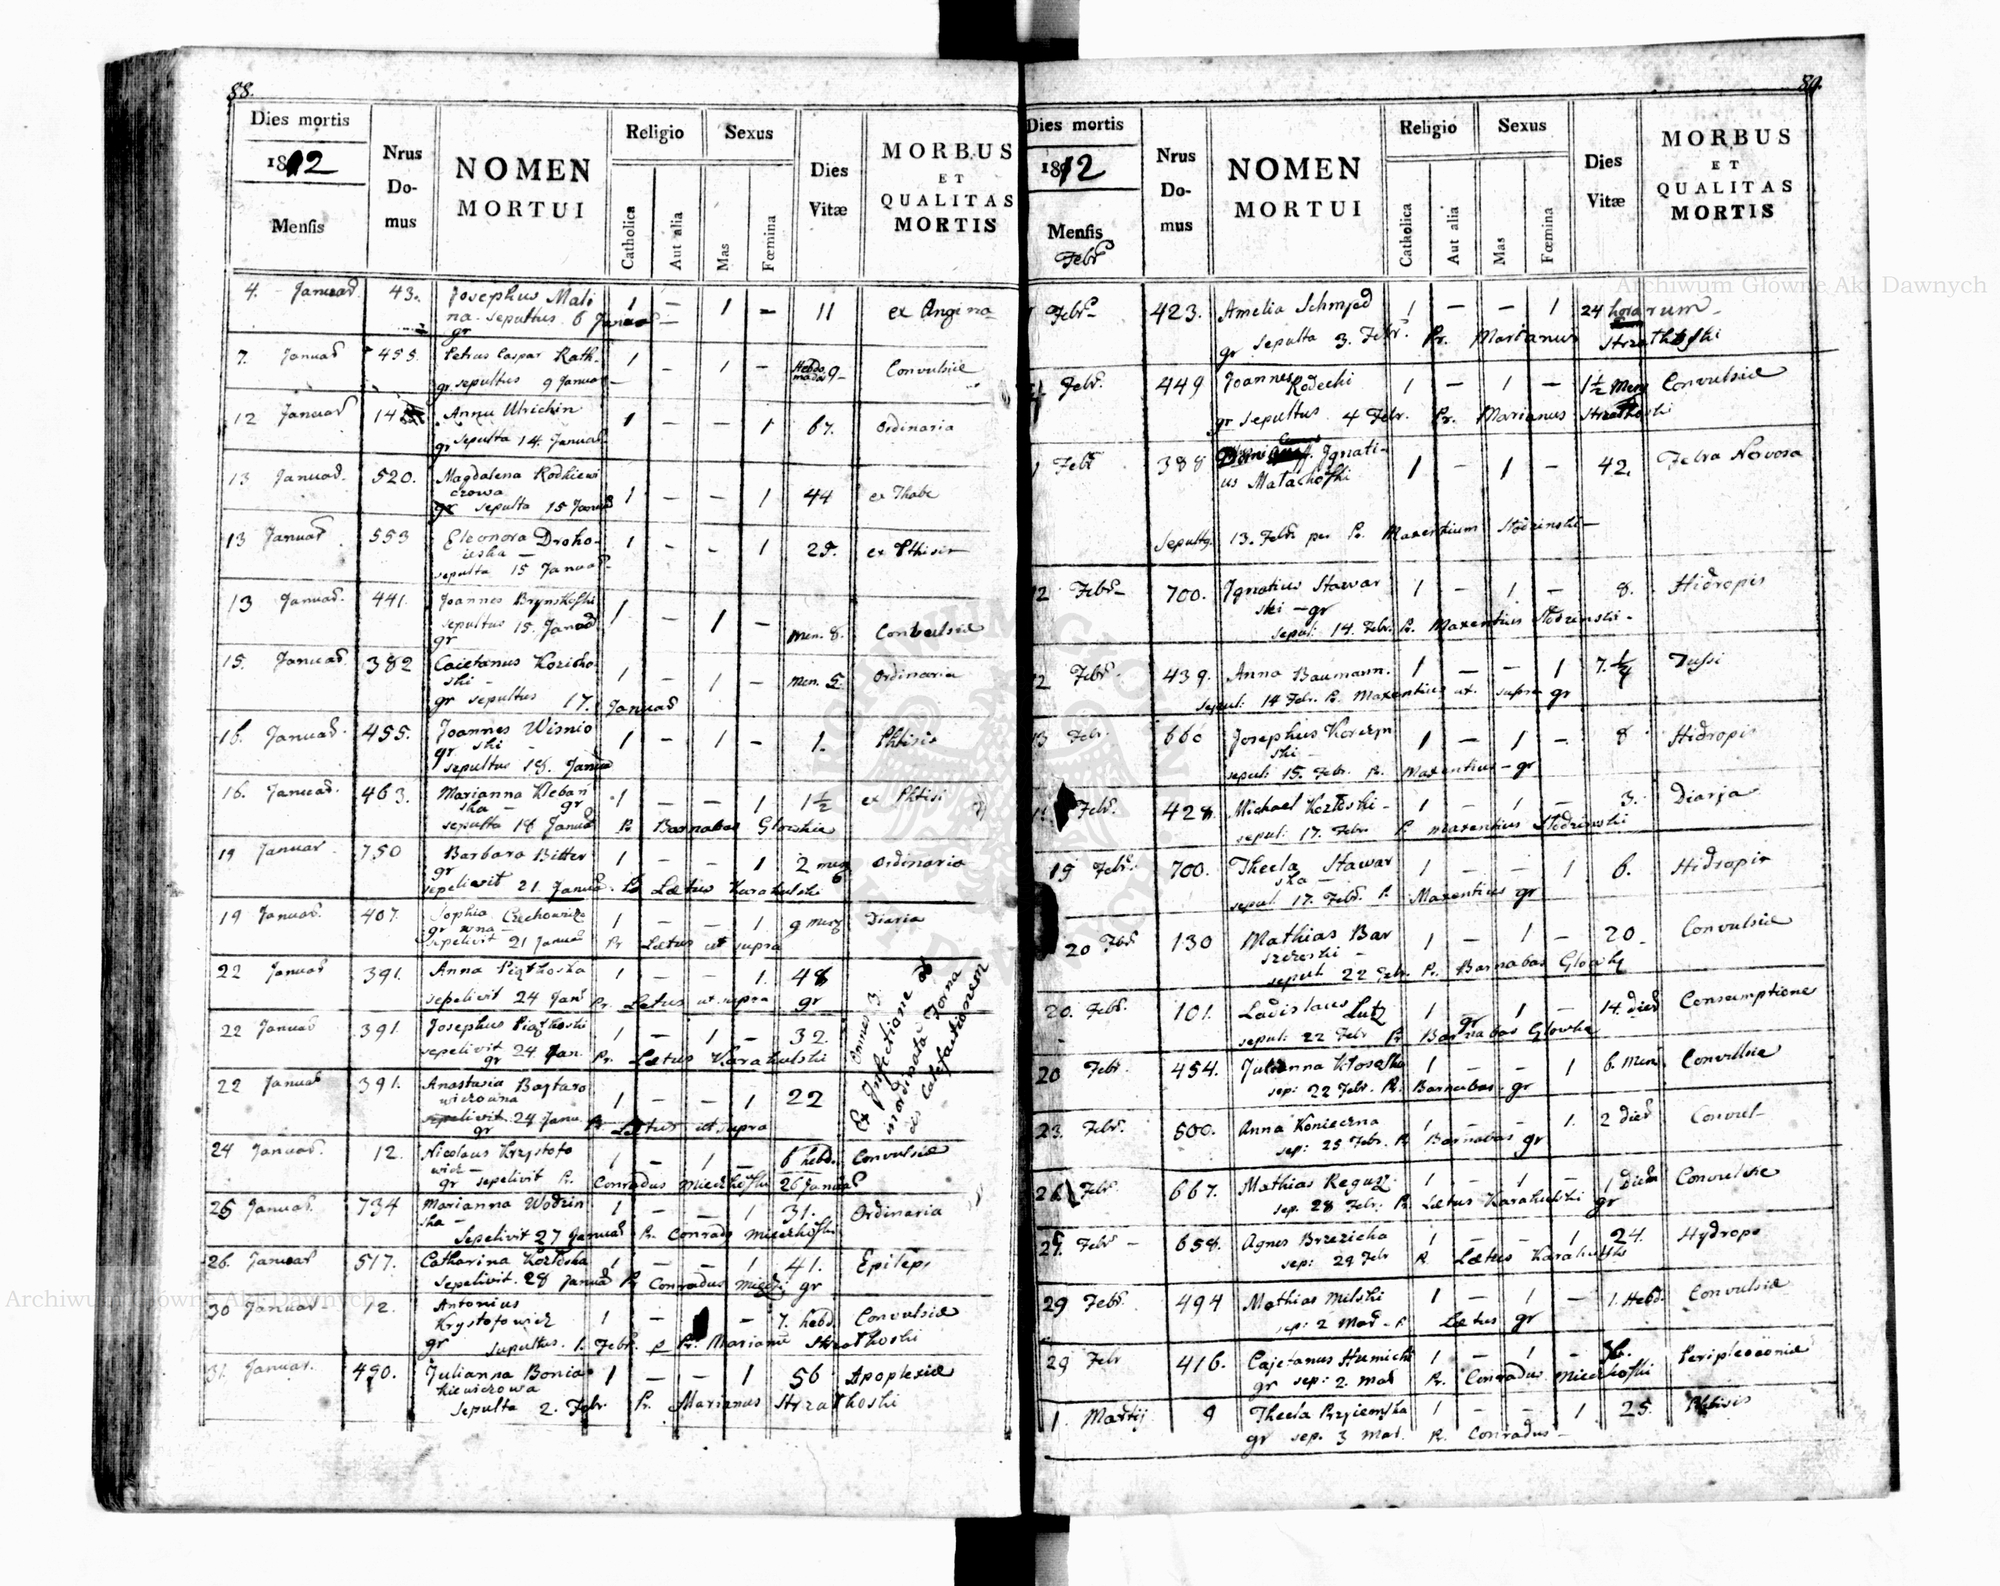 88.
Dies mortis
1812
Mensis
Nrus Domus
NOMEN MORTUI
Religio
Catholica
Aut alia
Sexus
Mas
Fœmina
Dies Vitæ
MORBUS ET QUALITAS MORTIS
4. Januar 43. Josephus Mali 1 – 1 – 11 ex Angina
na sepultus 6 Januar
gr
7. Januar 455. Petrus Caspar Rath. 1 – 1 – Hebdomadar 9 Convulsiæ
gr. sepultus 9 Januar
12 Januar Anna Ulrichin 1 – – 1 67. Ordinaria
gr sepulta 14. Januar
13 Januar. 520. Magdalena Rodkiewi 1 – – 1 44 ex Thabe
czowa
gr sepulta 15 Januar
13 Januar 553 Eleonora Droho- 1 – – 1 ex Phtisis
sepulta 15 Januar
13 Januar. 441. Joannes Brynskofski 1 – 1 – Men. 8. Convulsiæ
sepultus 15. Januar
gr
15. Januar. 382 Caietanus Kozicko 1 – 1 – Men. 5 Ordinaria
ski –
gr sepultus 17. Januar
16. Januar. 455. Joannes Wisnio 1 – 1 – 1. Phtisis
gr ski –
sepultus 18. Januar
16. Januar. 463. Marianna Kleban 1 – – 1 1½ ex Phtisi
ska – gr
sepulta 18 Januar P. Barnabas Glowkia
19 Januar 750 Barbara Bitter 1 – – 1 2 Ordinaria
gr
sepelivit 21. Januar. P. Lætus Karakulski
19 Januar. 407. Sophia 1 – – 1. 9 Diaria
gr wna
sepelivit 21 Januar Pr Lætus ut supra
22 Januar 391. Anna Piątkoska 1 – – 1. 48
sepelivit 24 Jan Pr. Lætus ut supra gr
22 Januar 391. Josephus Piątkoski 1 – 1 – 32.
sepelivit 24 Jan. Pr. Lætus Karakulski
gr
22 Januar 391. Anastasia Bartaro 1 – – 1 22
wiczowna
sepelivit 24 Janu. Pr Lætus ut supra
gr
Omnes 3
Ex Infectione ab
inordinata Forna
cis Calefactionem
24 Januar. 12. Nicolaus Krzystofo 1 – 1 – 6 hebd. Convulsiæ
wicz –
gr sepelivit P. Conradus Mieczkofski 26 Januar
25 Januar. 734 Marianna Wodzin 1 – – 1 31. Ordinaria
ska –
Sepelivit 27 Januar P. Conrads Mieczkofski
26. Januar 517. Catharina Kozloska 1 – – 1 41. Epilep.
sepelivit. 28 Januar P. Conradus gr
30 Januar. 12. Antonius 1 – – 7. hebd. Convulsiæ
Krystofowicz
gr sepultus. 1. Febr. p Pr. Marianu Strzałkoski
31. Januar. 490. Julianna Bonia 1 – – 1 56 Apoplexiæ
kiewiczowa
sepulta 2. Febr. Pr. Marianus Strzałkoski
89.
Dies mortis
1812
Mensis
Febr
Nrus Domus
NOMEN MORTUI
Religio
Catholica
Aut alia
Sexus
Mas
Fœmina
Dies Vitæ
MORBUS ET QUALITAS MORTIS
Febr 423. Amelia Schmied 1 – – 1 24 horarum
gr sepulta 3. Febr. Pr. Marianus Strzałkofski
Febr. 449 Joannes Rodecki 1 – 1 – 1½ Convulsiæ
gr sepultus 4 Febr. Pr. Marianus Strzałkoski
Febr 388 Ignati- 1 – 1 – 42. Febra Nervosa
us Malachofski
Sepultq. 13. Febr per P. Maxentium Stodzinski
12 Febr 700. Ignatius Stawar 1 – 1 – 8. Hidropis
ski – gr
sepul: 14. Febr. P. Maxentius Stodzinski.
12 Febr 439. Anna Baumann. 1 – – 1 7.¼ Tussi
sepul: 14 Febr. P. Maxentius ut. supra gr
13 Febr. 660 Josephus Korczyn 1 – 1 – 8 Hidropis
ski –
sepul: 15. Febr. P. Maxentius – gr
Febr. 428. Michael Kozłoski 1 – 1 – 3. Diarja
sepul: 17. Febr. P. Maxentius Stodzinski
15 Febr. 700. Thecla Stawar 1 – – 1 6. Hidropis
ska –
sepul 17. Febr. P. Maxentius gr
20 Febr 130 Mathias Bar 1 – 1 – 20 Convulsiæ
szczeski –
sepul 22 Febr. Pr. Barnabas Glowky
20. Febr. 101. Ladislaus Lutz 1 – 1 – 14. dier Consumptione
gr
sepul: 22 Febr Pr Barnabas Glowka
20 Febr. 454. Julianna Kłososka 1 – – 1 6. Men. Convulsiæ
sep: 22 Febr. P. Barnabas gr
23. Febr. 500. Anna Konieczna 1 – – 1. 2 dier Convul-
sep: 25 Febr. P. Barnabas gr
26 Febr 667. Mathias Regusz. 1 – 1 – 1 dierum Convulsiæ
sep. 28 Febr. P. Lætus Karakulski gr
Febr – 658. Agnes Brzezicka 1 – – 1 24. Hydrops
sep: 29 Febr P. Lætus Karakulski
29 Febr. 494 Mathias Milski 1 – 1 – 1. Hebd. Convulsiæ
sep: 2 Mar. P. Lætus gr
29 Febr 416. Cajetanus Humicki 1 – 1 – 36. Peripleoёnia
gr sep: 2. Mar P. Conradus Mieczkofski
1. Martij 9 Thecla Przyiemska 1 – – 1 25. Phtisis
gr sep. 3 Mar. P. Conradus –
Archiwum Główne Akt Dawnych
Archiwum Główne Akt Dawnych